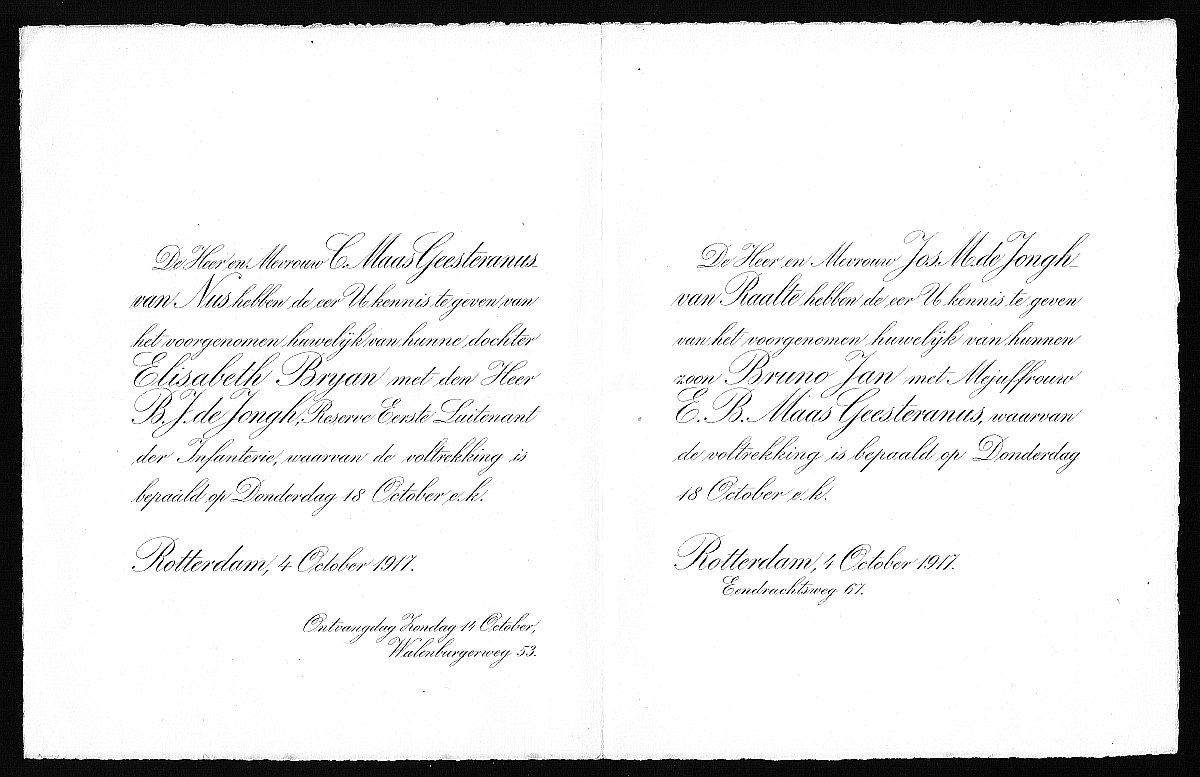 De Heer en Mevrouw C. Maas Geesteranus-
van Nus hebben de eer U kennis te geven van
het voorgenomen huwelijk van hunne dochter
Elisabeth Bryan met den Heer
B. J. de Jongh, Reserve Eerste Luitenant
der Infanterie, waarvan de voltrekking is
bepaald op Donderdag 18 October e.k.
Rotterdam, 4 October 1917.
Ontvangdag Zondag 14 October,
Walenburgerweg 53.
De Heer en Mevrouw Jos. M. de Jongh-
van Raalte hebben de eer U kennis te geven
van het voorgenomen huwelijk van hunnen
zoon Bruno Jan met Mejuffrouw
E. B. Maas Geesteranus, waarvan
de voltrekking is bepaald op Donderdag
18 October e.k.
Rotterdam, 4 October 1917.
Eendrachtsweg 67.